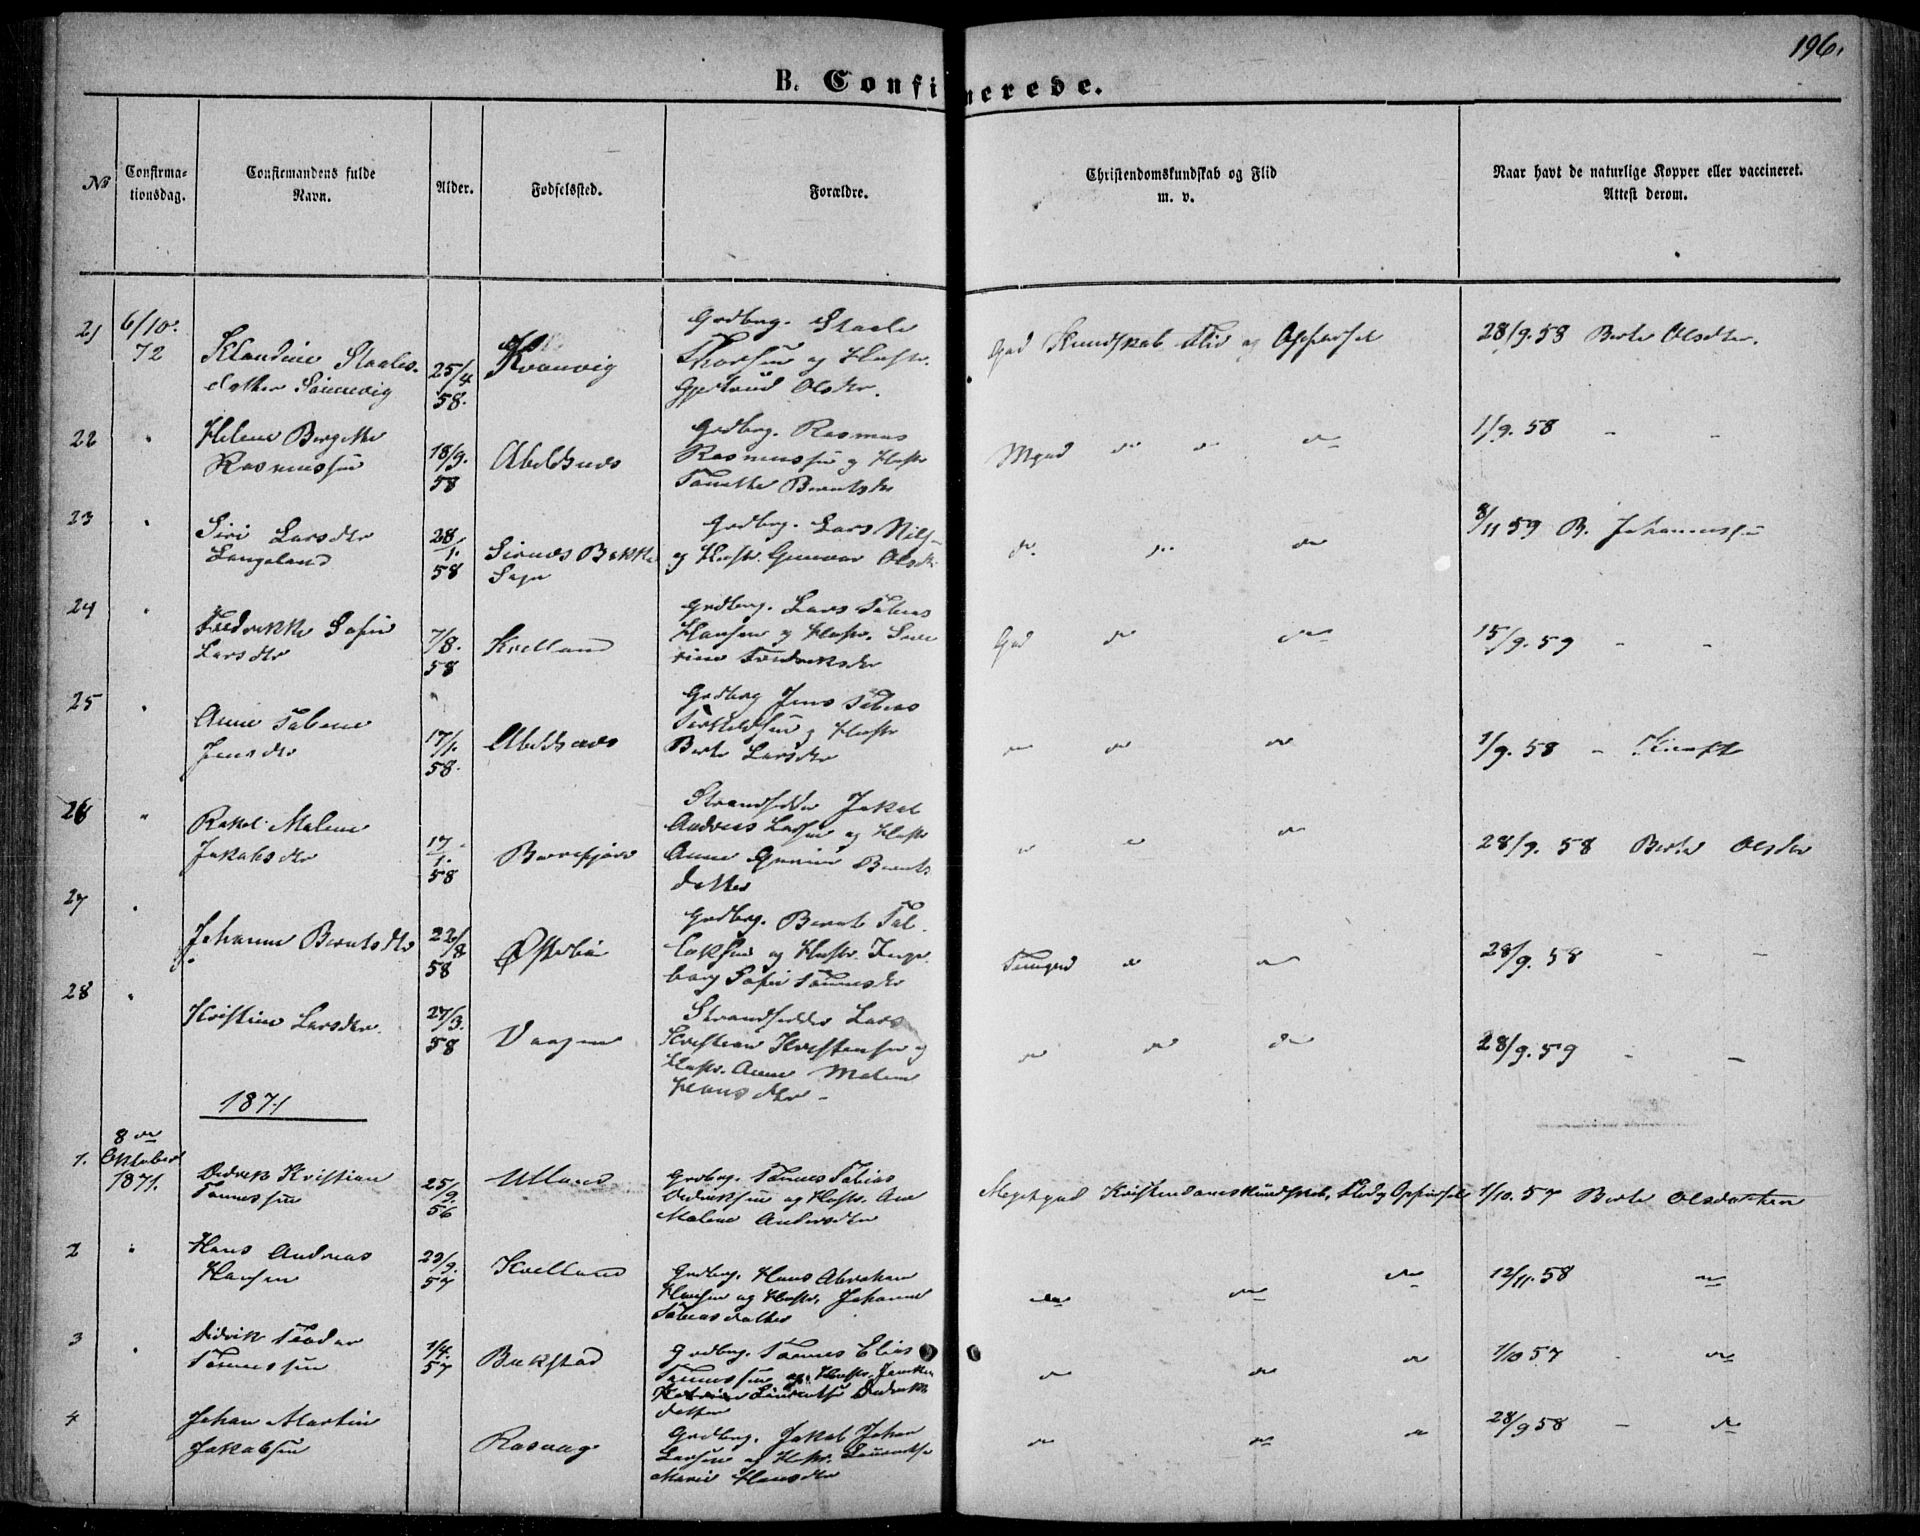 196.
B. Confirmerede.
No
Confirma-
tionsdag.
Confirmandens fulde
Navn.
Alder.
Fødselssted.
Forældre.
Christendomskundskab og Flid
m. v.
Naar havt de naturlige Kopper eller vaccineret.
Attest derom.
21 6/10. 72
Klandine Staales-
datter Sannevig
25/4 58.
Kvanvig
Grdbrg. Staale
Thorsen og Hustr.
Gjertrud Olsdtr.
God Kundskab Flid og Opførsel
28/9. 58 Berte Olsdtr.
22 "
Helene Bergitte
Rasmussen
18/9. 58
Abelsnæs
Grdbrg. Rasmus
Rasmussen og Hustr
Tonette Berntsdtr
Mgod do do do
1/9. 58 - -
23 "
Siri Larsdtr
Langeland
28/1. 58
Sirnæs Bakke
Sogn
Grdbrg. Lars Nils
og Hustr. Gunvor Olsdtr
do. do do
8/11 59 B. Johannessen
24 "
Fredrikke Sofie
Larsdtr
7/8. 58
Kvelland
Grdbrg. Lars Tobias
Hansen og Hustr. Seve
rine Fredriksdtr
God do do
15/9. 59 - -
25 "
Anne Tobine
Jensdtr
17/1. 58.
Abelsnæs
Grdbrg Jens Tobias
Terkeldsen og Hustr
Berte Larsdtr
do do do
1/9. 58 -
26 "
Rakel Malene
Jakobsdtr
17/1. 58
Strandsidder Jakob
Andreas Larsen og Hustr
Anne Gurine Bernts
datter
do do do
28/9. 58 Berte Olsdtr
27 "
Johanne Berntsdtr
22/8 58
Østebø
Grdbrg. Bernt Tal-
laksen og Hustr. Inge-
borg Sofie Tønnesdtr
Temgod do do
28/9. 58 - -
28 "
Kristine Larsdtr.
27/3. 58
Vaagen
Strandsidder Lars
Kristian Kristensen og
Hustr. Anne Malene
Hansdtr -
do do do
28/9. 59 - -
1871
1. 8de
Oktober
1871.
Didrik Kristian
Tønnessen
25/9. 56
Ulland
Grdbrg. Tønnes Tobias
Didriksen og Hustr. Ane
Malene Andersdtr
Megetgod Kristendomskundskab, Flid og Opførsel
1/10. 57 Berte Olsdatter
2 "
Hans Andreas
Hansen
23/9. 57
Kvelland
Grdbrg. Hans Abraham
Hansen og Hustr. Johanne
Tobiasdatter
do do do
12/11. 58 do
3 "
Didrik Teodor
Tønnessen
1/4. 57
Bakstad
Grdbrg. Tønnes Elias
Tønnessen og Hustr.
Didriks
datter
do do do
1/10 57 - do
4
Johan Martin
Jakobsen
Rasvag
Grdbrg. Jakob Johan
Larsen og Hustr.
Marie Hansdtr
do do do
28/9 58 - do